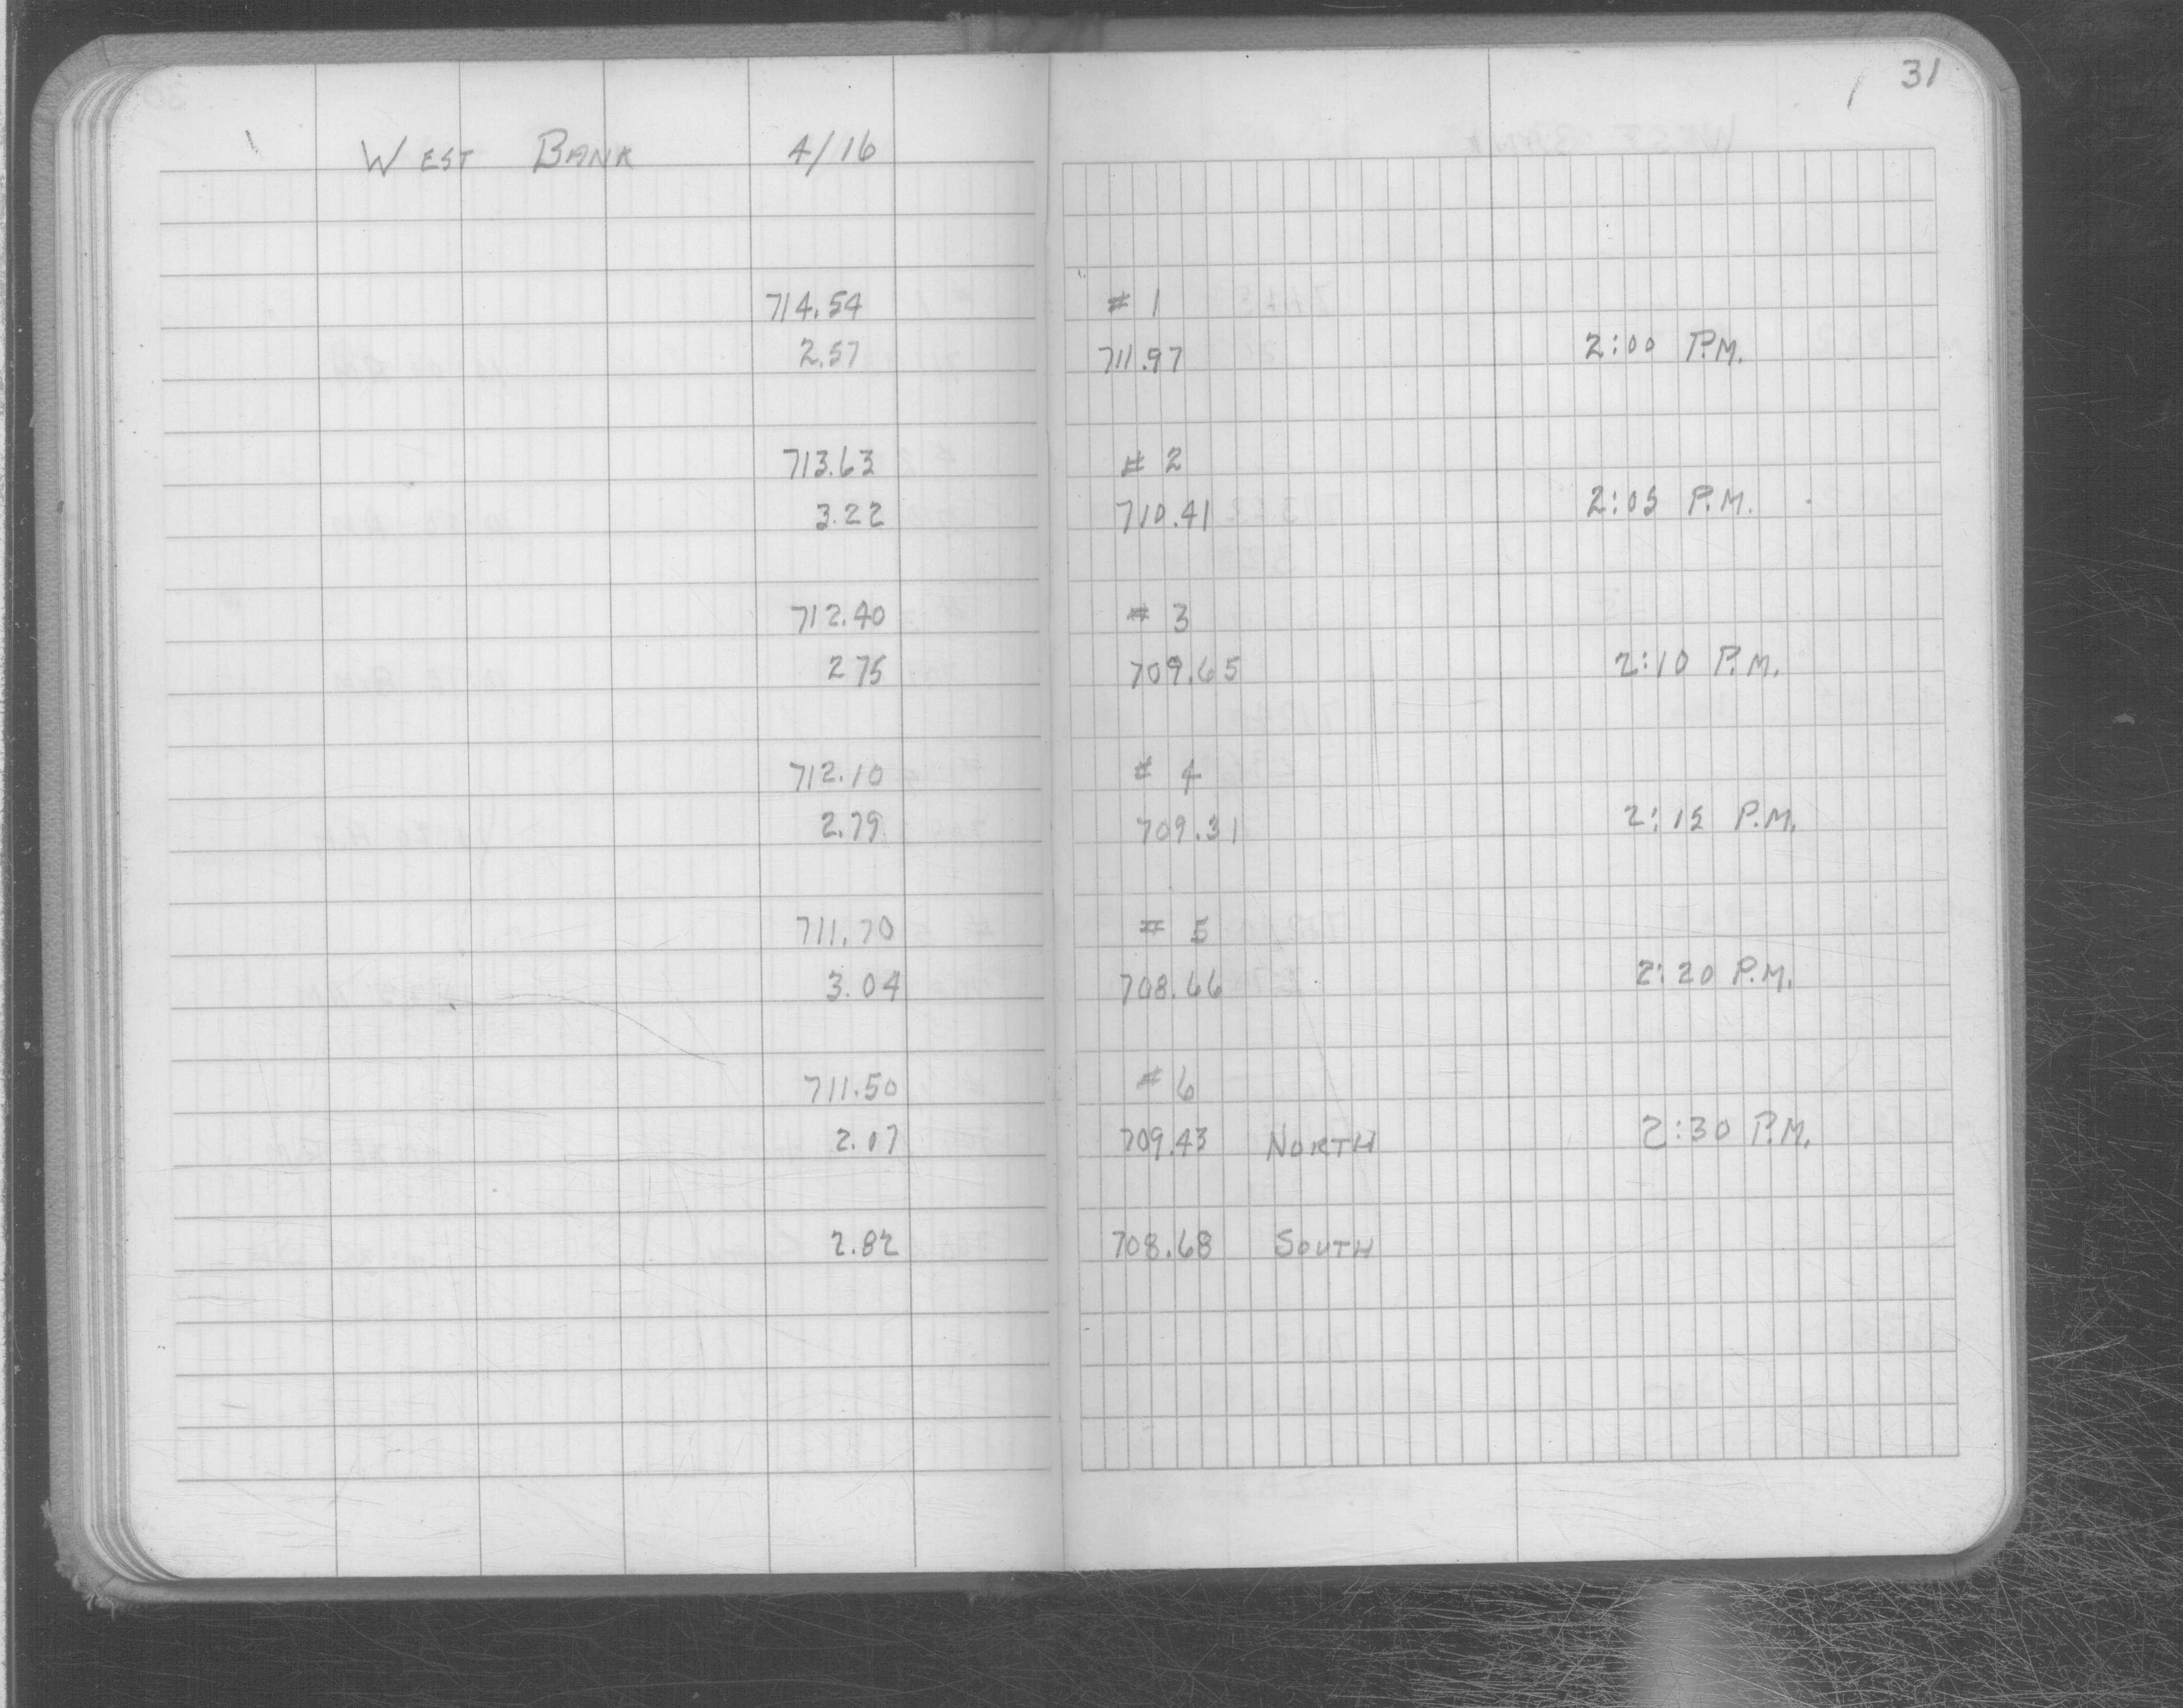 31
WEST BANK 4/16
714.54 # 1
2.57 711.97 2:00 P.M.
713.63 # 2
3.22 710.41 2:05 P.M.
712.40 # 3
2 75 709.65 2:10 P.M.
712.10 # 4
2.79 709.31 2:15 P.M.
711.70 # 5
3.04 708.66 2:20 P.M.
711.50 # 6
2.07 709.43 NORTH 2:30 P.M.
2.82 708.68 SOUTH